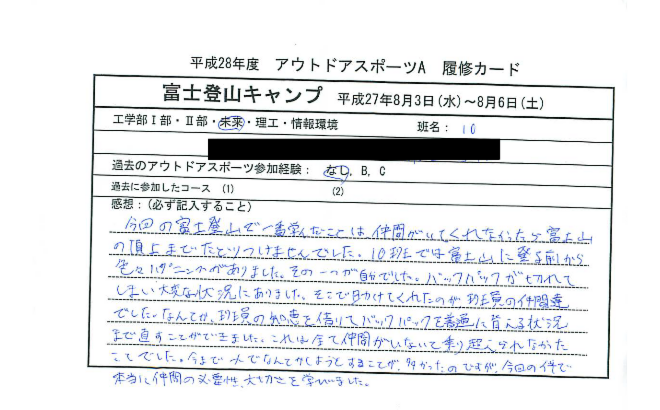 平成28年度 アウトドアスポーツA 履修カード
富士登山キャンプ 平成27年8月3日(水)～8月6日(土)
工学部Ⅰ部・Ⅱ部・未来・理工・情報環境 班名: 10
過去のアウトドアスポーツ参加経験: なし, B, C
過去に参加したコース (1) (2)
感想:(必ず記入すること)
今回の富士登山で一番学んだことは仲間がいてくれたなかったら富士山
の頂上までたどりつけませんでした。10班では富士山に登る前から
色々ハプニングがありました。その一つが自分でした。バックパックが切れて
しまい大変な状況にありました。そこで助けてくれたのが班員の仲間達
でした。なんとか、班員の知恵を借りてバックパックを普通に背える状況
まで直すことができました。これは全て仲間がいないと乗り超えられなかった
ことでした。今まで一人でなんとかしようとすることが、多かったのですが、今回の件で
本当に仲間の必要性、大切さを学びました。